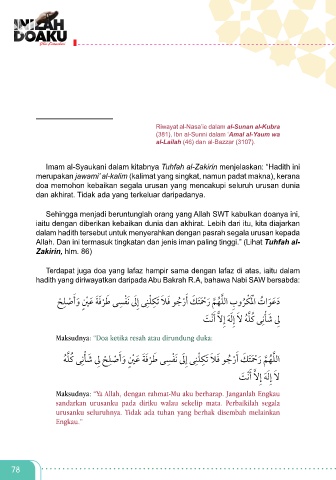 INILAH
DOAKU
Riwayat al-Nasa'ie dalam al-Sunan al-Kubra
(381), Ibn al-Sunni dalam 'Amal al-Yaum wa
al-Lailah (46) dan al-Bazzar (3107).
Imam al-Syaukani dalam kitabnya Tuhfah al-Zakirin menjelaskan: "Hadith ini
merupakan jawami' al-kalim (kalimat yang singkat, namun padat makna), kerana
doa memohon kebaikan segala urusan yang mencakupi seluruh urusan dunia
dan akhirat. Tidak ada yang terkeluar daripadanya.
Sehingga menjadi beruntunglah orang yang Allah SWT kabulkan doanya ini,
iaitu dengan diberikan kebaikan dunia dan akhirat. Lebih dari itu, kita diajarkan
dalam hadith tersebut untuk menyerahkan dengan pasrah segala urusan kepada
Allah. Dan ini termasuk tingkatan dan jenis iman paling tinggi." (Lihat Tuhfah al-
Zakirin, hlm. 86)
Terdapat juga doa yang lafaz hampir sama dengan lafaz di atas, iaitu dalam
hadith yang diriwayatkan daripada Abu Bakrah R.A, bahawa Nabi SAW bersabda:
دَعَوَاتُ الْمَكْرُوبِ اللَّهُمَّ رَحْمَتَكَ أَرْجُو فَلَا تَكِلْنِي إِلَى نَفْسِي طَرْفَةَ عَيْنٍ وَأَصْلِحْ
لِي شَأْنِي كُلَّهُ لَا إِلَهَ إِلَّا أَنْتَ
Maksudnya: "Doa ketika resah atau dirundung duka:
اللَّهُمَّ رَحْمَتَكَ أَرْجُو فَلَا تَكِلْنِي إِلَى نَفْسِي طَرْفَةَ عَيْنٍ وَأَصْلِحْ لِي شَأْنِي كُلَّهُ
لَا إِلَهَ إِلَّا أَنْتَ
Maksudnya: "Ya Allah, dengan rahmat-Mu aku berharap. Janganlah Engkau
sandarkan urusanku pada diriku walau sekelip mata. Perbaikilah segala
urusanku seluruhnya. Tidak ada tuhan yang berhak disembah melainkan
Engkau."
78